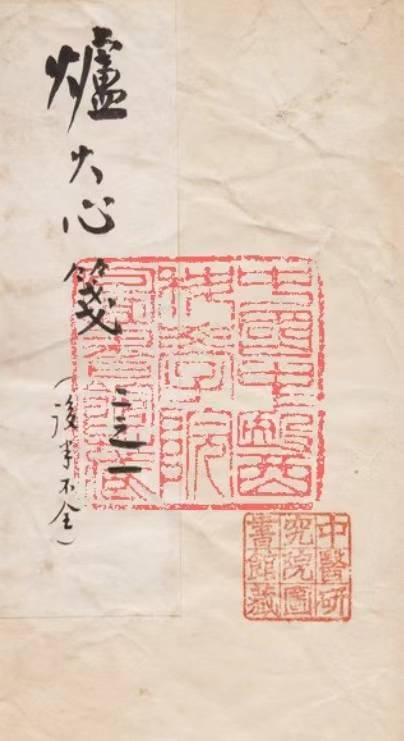 爐火心箋 二之一
(後半不全)
中國中醫
科學院
圖書館藏
中醫研
究院圖
書館藏